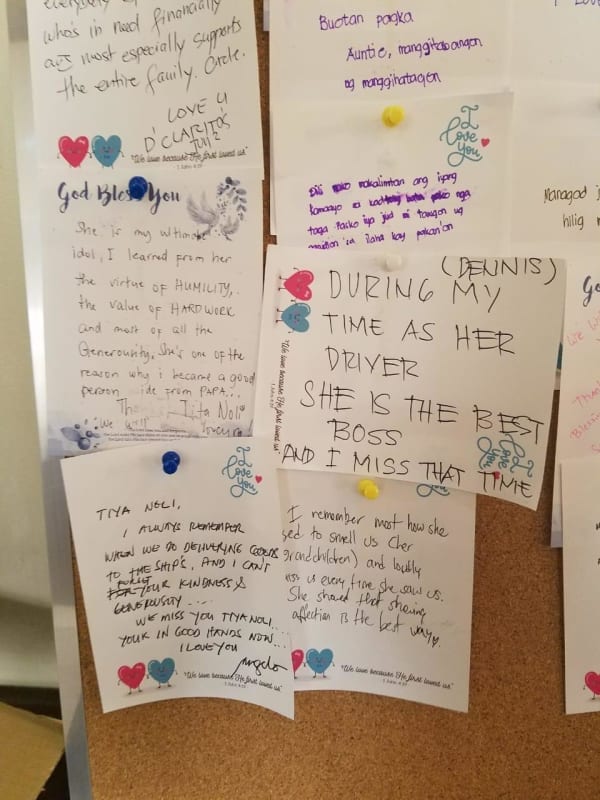 who's in need financially
and most especially supports
the entire family. Circle.
LOVE U
D'CLARITOS
"We love because He first loved us"
1 John 4:19
Buotan pagka
Auntie, manggihatagon
ng manggihatagon
I
love
You
Dili mako makalimtan ang iyang
taga
iya jud
ug
sa ilaha kay pakan'on
Managad
hilig
God Bless You
She is my ultimate
idol, I learned from her
the virtue of HUMILITY,
the value of HARDWORK
and most of all the
Generousity. She's one of the
reason why i became a good
person side from PAPA...
Tita Noli
We will
(DENNIS)
DURING MY
TIME AS HER
DRIVER
SHE IS THE BEST
BOSS
AND I MISS THAT TIME
"We love because He first loved us"
I
love
You
I
love
You
TIYA NOLI,
I ALWAYS REMEMBER
WHEN WE DO DELIVERING GOODS
TO THE SHIP'S, AND I CAN'T
FORGET
YOUR KINDNESS &
GENEROUSITY....
WE MISS YOU TIYA NOLI..
YOUR IN GOOD HANDS NOW...
I LOVE YOU
"We love because He first loved us"
1 John 4:19
I remember most how she
used to smell us (her
grandchildren) and loudly
kiss us every time she saw us.
She showed that showing
affection is the best way
"We love because He first loved us"
1 John 4:19